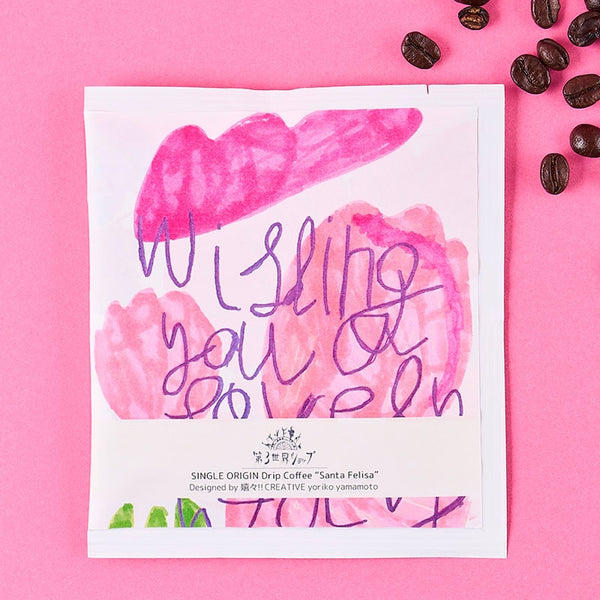 Wishing
you a
lovely
第3世界ショップ
SINGLE ORIGIN Drip Coffee "Santa Felisa"
Designed by 嬉々!! CREATIVE yoriko yamamoto